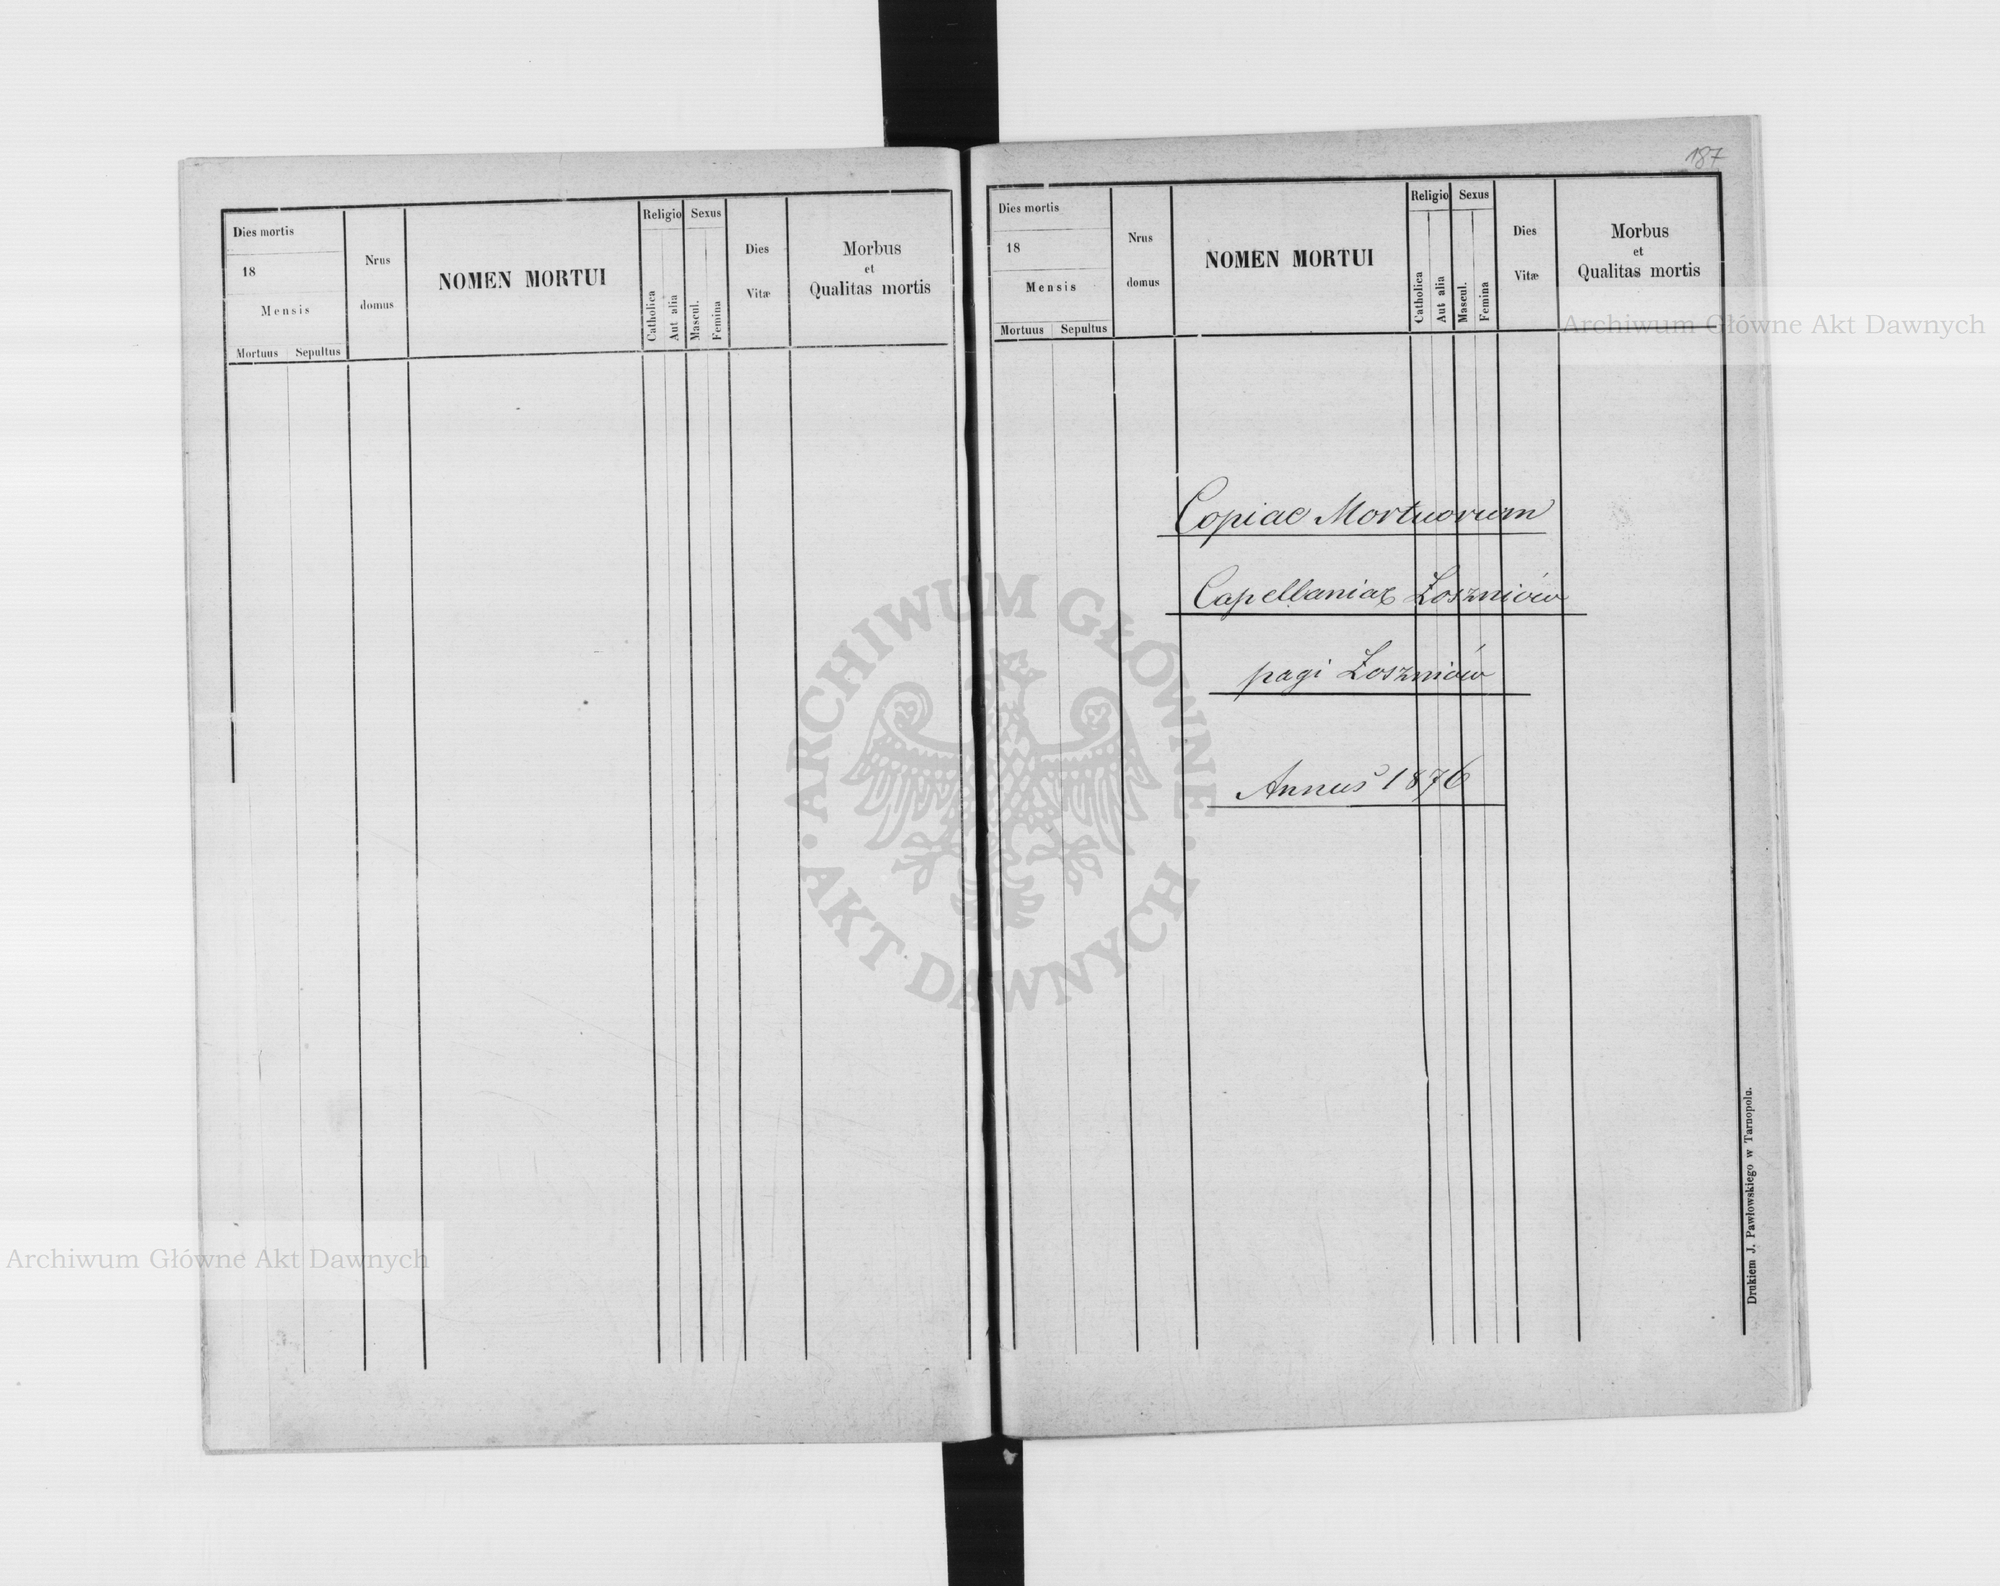 Dies mortis
18
Mensis
Mortuus Sepultus
Nrus
domus
NOMEN MORTUI
Religio
Catholica
Aut alia
Sexus
Mascul.
Femina
Dies
Vitæ
Morbus
et
Qualitas mortis
187
Dies mortis
18
Mensis
Mortuus Sepultus
Nrus
domus
NOMEN MORTUI
Religio
Catholica
Aut alia
Sexus
Mascul.
Femina
Dies
Vitæ
Morbus
et
Qualitas mortis
Copiae Mortuorum
Capellaniae Łoszniów
pagi Łoszniów
Annus 1876
Drukiem J. Pawłowskiego w Tarnopolu.
Archiwum Główne Akt Dawnych
ARCHIWUM GŁÓWNE · AKT DAWNYCH ·
Archiwum Główne Akt Dawnych